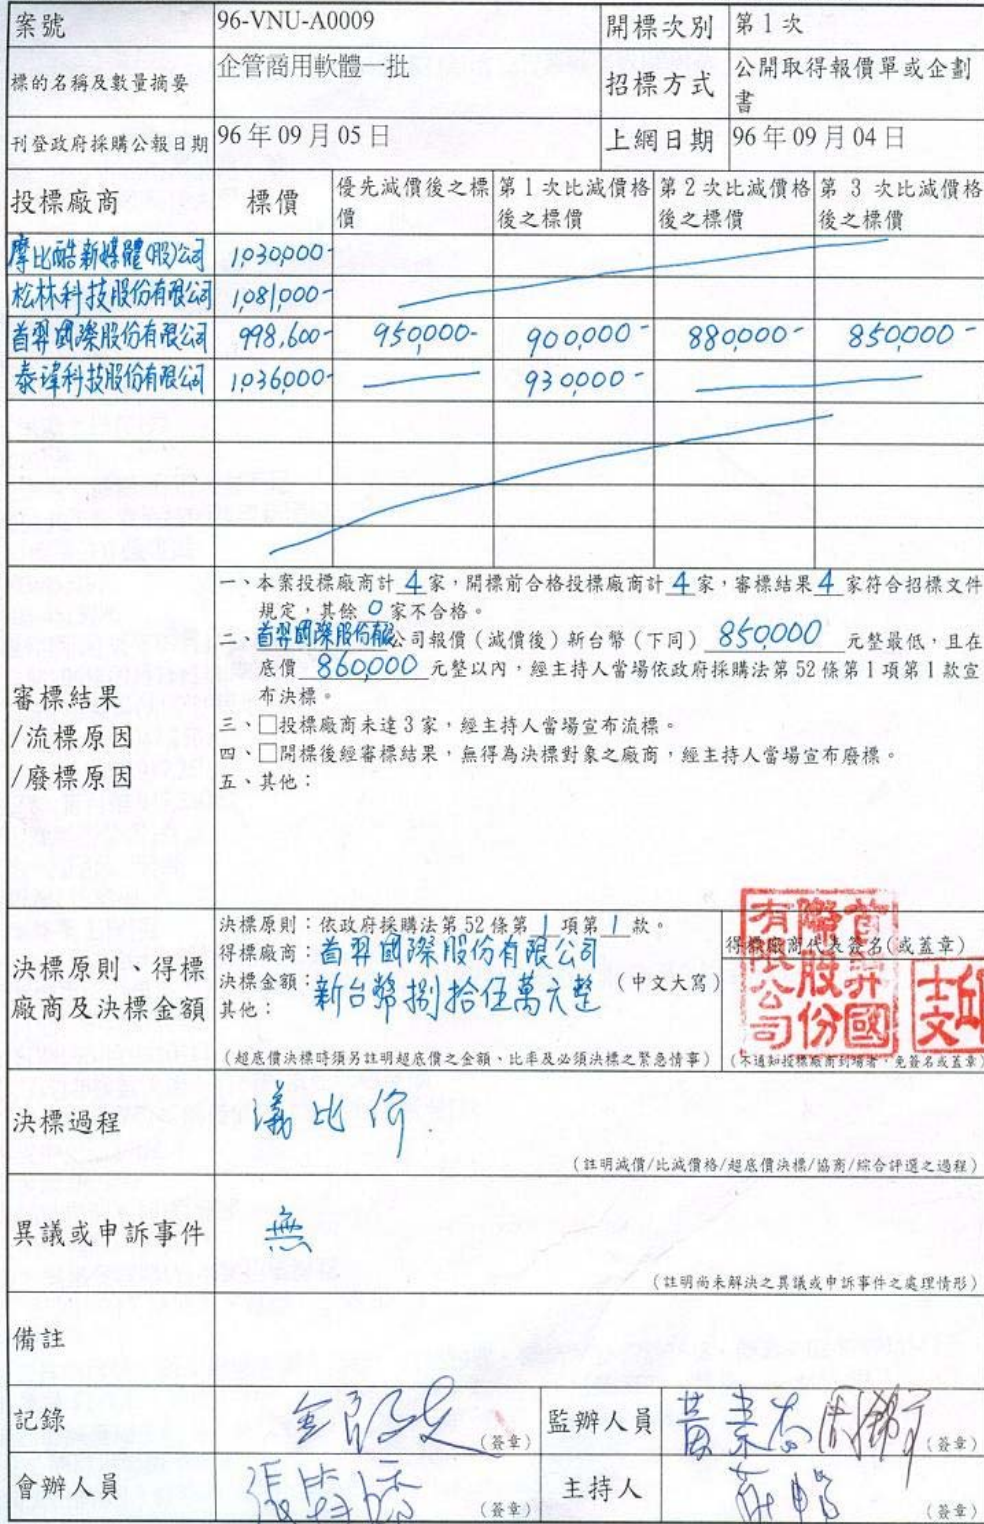 案號 96-VNU-A0009 開標次別 第1次
標的名稱及數量摘要 企管商用軟體一批 招標方式 公開取得報價單或企劃
書
刊登政府採購公報日期 96年09月05日 上網日期 96年09月04日
投標廠商 標價 優先減價後之標 第1次比減價格 第2次比減價格 第3次比減價格
價 後之標價 後之標價 後之標價
摩比酷新媒體(股)公司 1,030,000-
松林科技股份有限公司 1,081,000-
首羿國際股份有限公司 998,600- 950,000- 900,000- 880,000- 850,000-
泰瑋科技股份有限公司 1,036,000- 930,000-
審標結果
/流標原因
/廢標原因
一、本案投標廠商計4家,開標前合格投標廠商計4家,審標結果4家符合招標文件
規定,其餘0家不合格。
二、首羿國際股份有限公司報價(減價後)新台幣(下同)850,000元整最低,且在
底價860,000元整以內,經主持人當場依政府採購法第52條第1項第1款宣
布決標。
三、□投標廠商未達3家,經主持人當場宣布流標。
四、□開標後經審標結果,無得為決標對象之廠商,經主持人當場宣布廢標。
五、其他:
決標原則、得標
廠商及決標金額
決標原則:依政府採購法第52條第1項第1款。
得標廠商:首羿國際股份有限公司
決標金額:新台幣捌拾伍萬元整(中文大寫)
其他:
(超底價決標時須另註明超底價之金額、比率及必須決標之緊急情事)
得標廠商代表簽名(或蓋章)
首羿國際股份有限公司
邱士文
(不通知投標廠商到場者,免簽名或蓋章)
決標過程 議比價
(註明減價/比減價格/超底價決標/協商/綜合評選之過程)
異議或申訴事件 無
(註明尚未解決之異議或申訴事件之處理情形)
備註
記錄 (簽章) 監辦人員 (簽章)
會辦人員 (簽章) 主持人 (簽章)